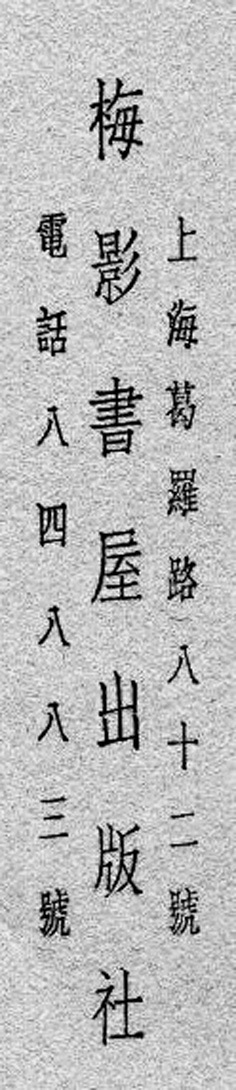 上海葛羅路八十二號
梅影書屋出版社
電話八四八八三號